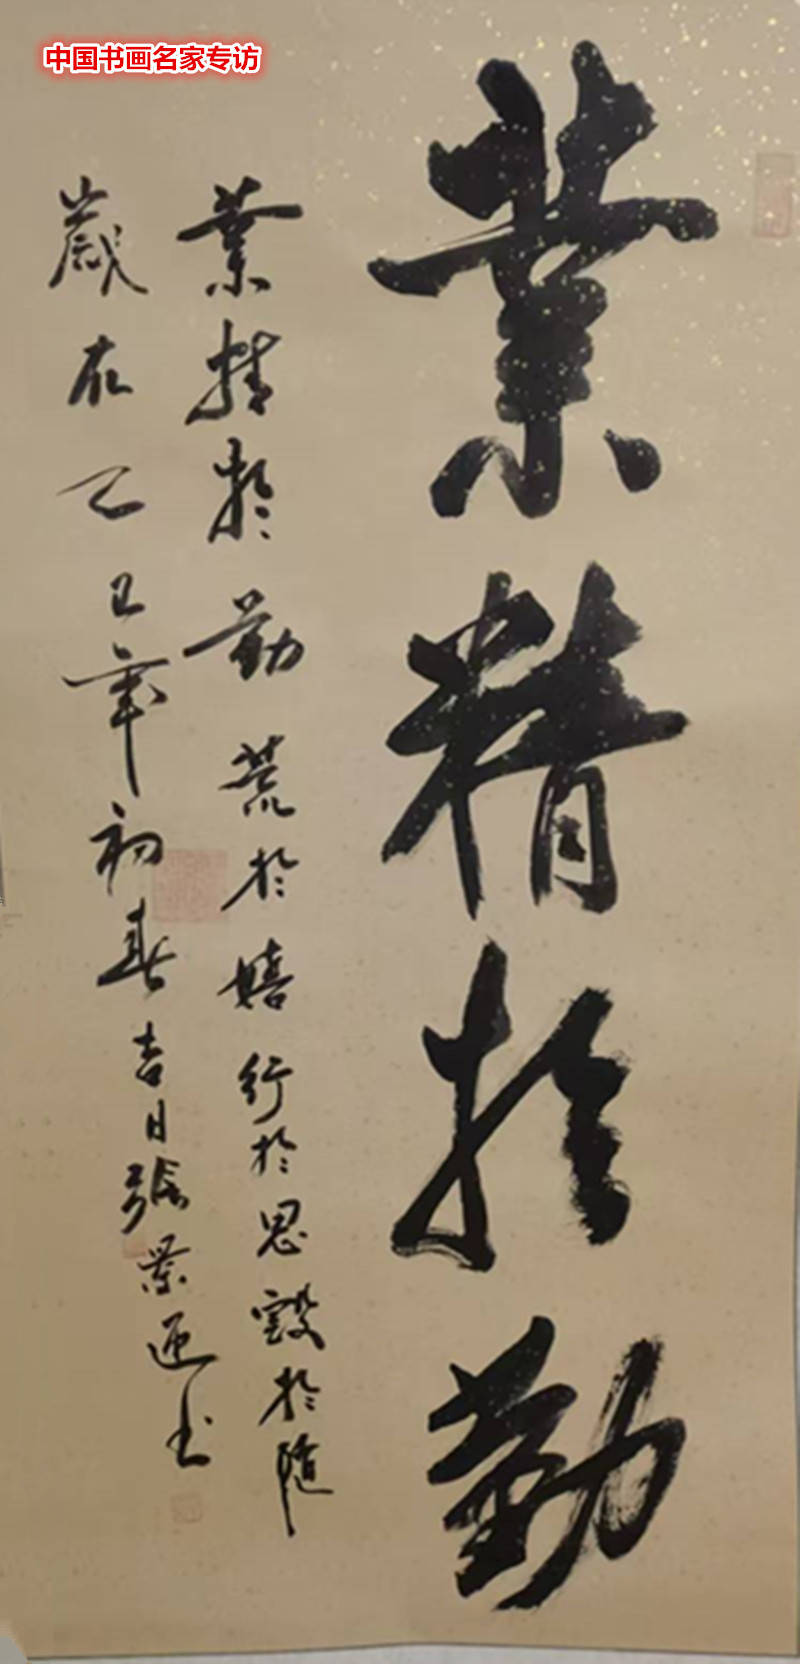 中国书画名家专访
業精於勤
業精於勤荒於嬉行於思毀於随
歲在乙巳年初春吉日張景通书